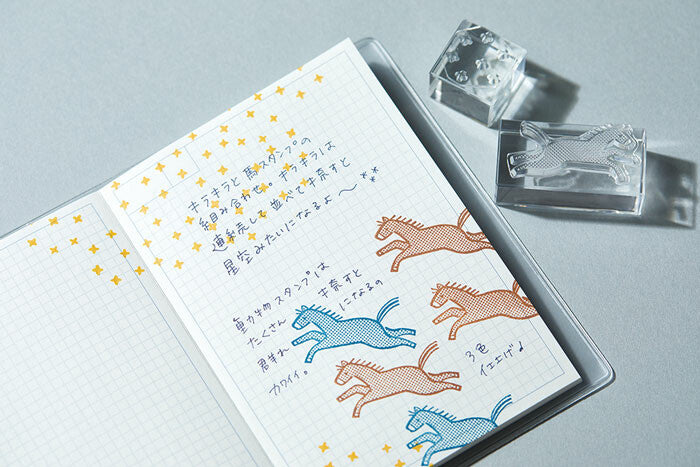 キラキラと馬スタンプの
組み合わせ。キラキラは
連続して並べて押すと
星空みたいになるよ〜
動物スタンプは
たくさん 押すと
群れ になるの
カワイイ。
3色
イエエげ♪